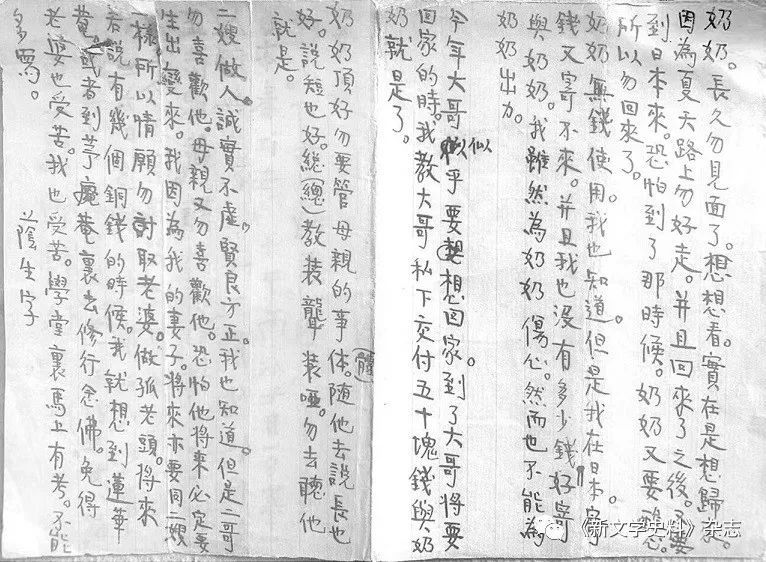 奶奶。長久勿見面了。想想看。實在是想歸來。
因為夏天路上勿好走。并且回來了之後。又要
到日本來。恐怕到了那時候。奶奶又要
所以勿回來了。
奶奶無錢使用。我也知道。但是我在日本。寄
錢又寄不來。并且我也沒有多少錢好寄
與奶奶。我雖然為奶奶傷心。然而也不能為
奶奶出力。
今年大哥似乎要想回家。到了大哥將要
回家的時。我教大哥私下交付五十塊錢與奶
奶就是了。
奶奶頂好勿要管母親的事体(體)。隨他去說長也
好。說短也好。総(總)教裝聾裝啞。勿去聽他
就是。
二嫂做人。誠實不虛。賢良方正。我也知道。但是二哥
勿喜歡他。母親又勿喜歡他。恐怕他將來必定要
生出變來。我因為我的妻子。將來亦要同二嫂
一樣。所以情願勿討取老婆。做孤老頭。將來
若說有幾個銅錢的時候。我就想到蓮華
菴。或者到茅菴裏去修行念佛。免得
老婆也受苦。我也受苦。學堂裏馬上有考。不能
多寫。 蔭生字
《新文学史料》杂志